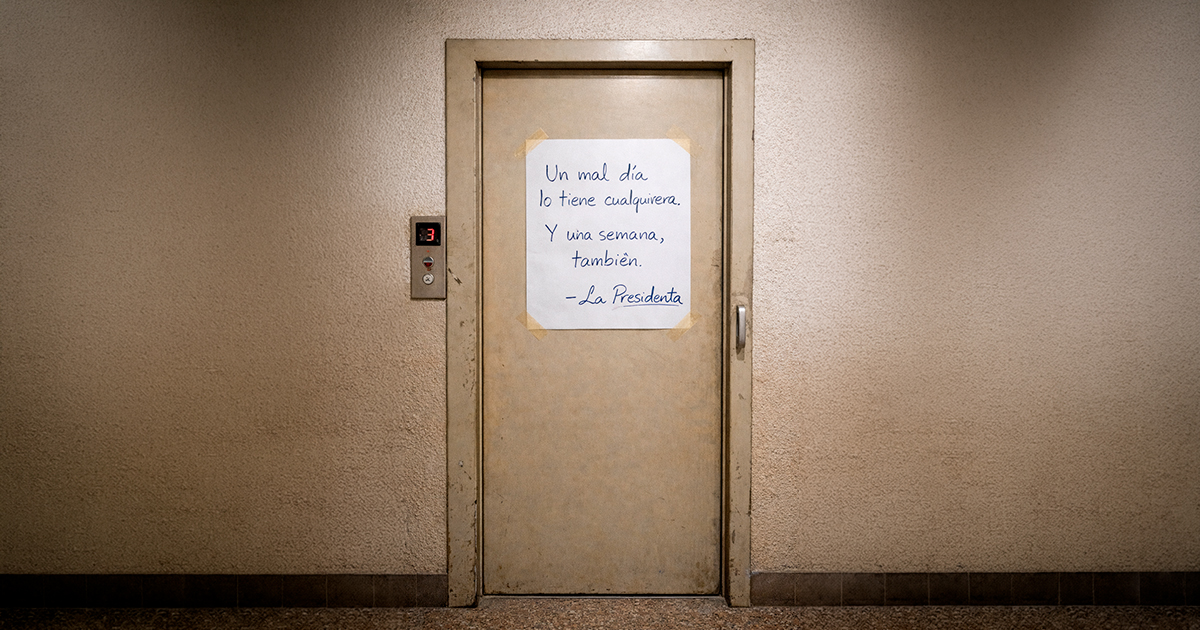 3
Un mal día
lo tiene cualquivera.
Y una semana,
también.
– La Presidenta